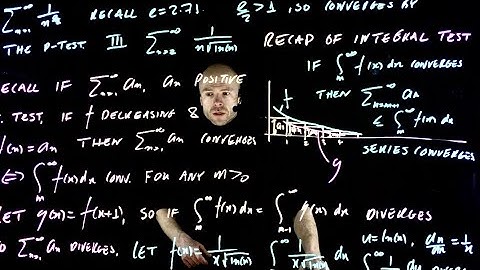 ∑_{n=1}^∞ 1/n^{e/2} RECALL e=2.71. e/2 > 1, SO CONVERGES BY
THE P-TEST III ∑_{n=2}^∞ 1/(n√ln(n))
RECAP OF INTEGRAL TEST
IF ∫_m^∞ f(x) dx CONVERGES
THEN ∑^∞ a_n
≤ ∫_m^∞ f(x) dx
SERIES CONVERGES
RECALL IF ∑_{n=1}^∞ a_n, a_n POSITIVE
TEST, IF f DECREASING &
f(n)=a_n THEN ∑_{n=1}^∞ a_n CONVERGES
⇔ ∫_m^∞ f(x)dx CONV. FOR ANY m>0
f
a_1
1 2 3 4
g
LET g(x) = f(x+1), SO IF ∫_m^∞ f(x) dx = ∫_{m-1}^∞ g(x) dx DIVERGES
SO ∑_{n=1}^∞ a_n DIVERGES. LET f(x) = 1/(x√ln(x)) ∫^∞ 1/(x√ln(x)) dx
u = ln(x), du/dx = 1/x
∫^∞ 1/√u du